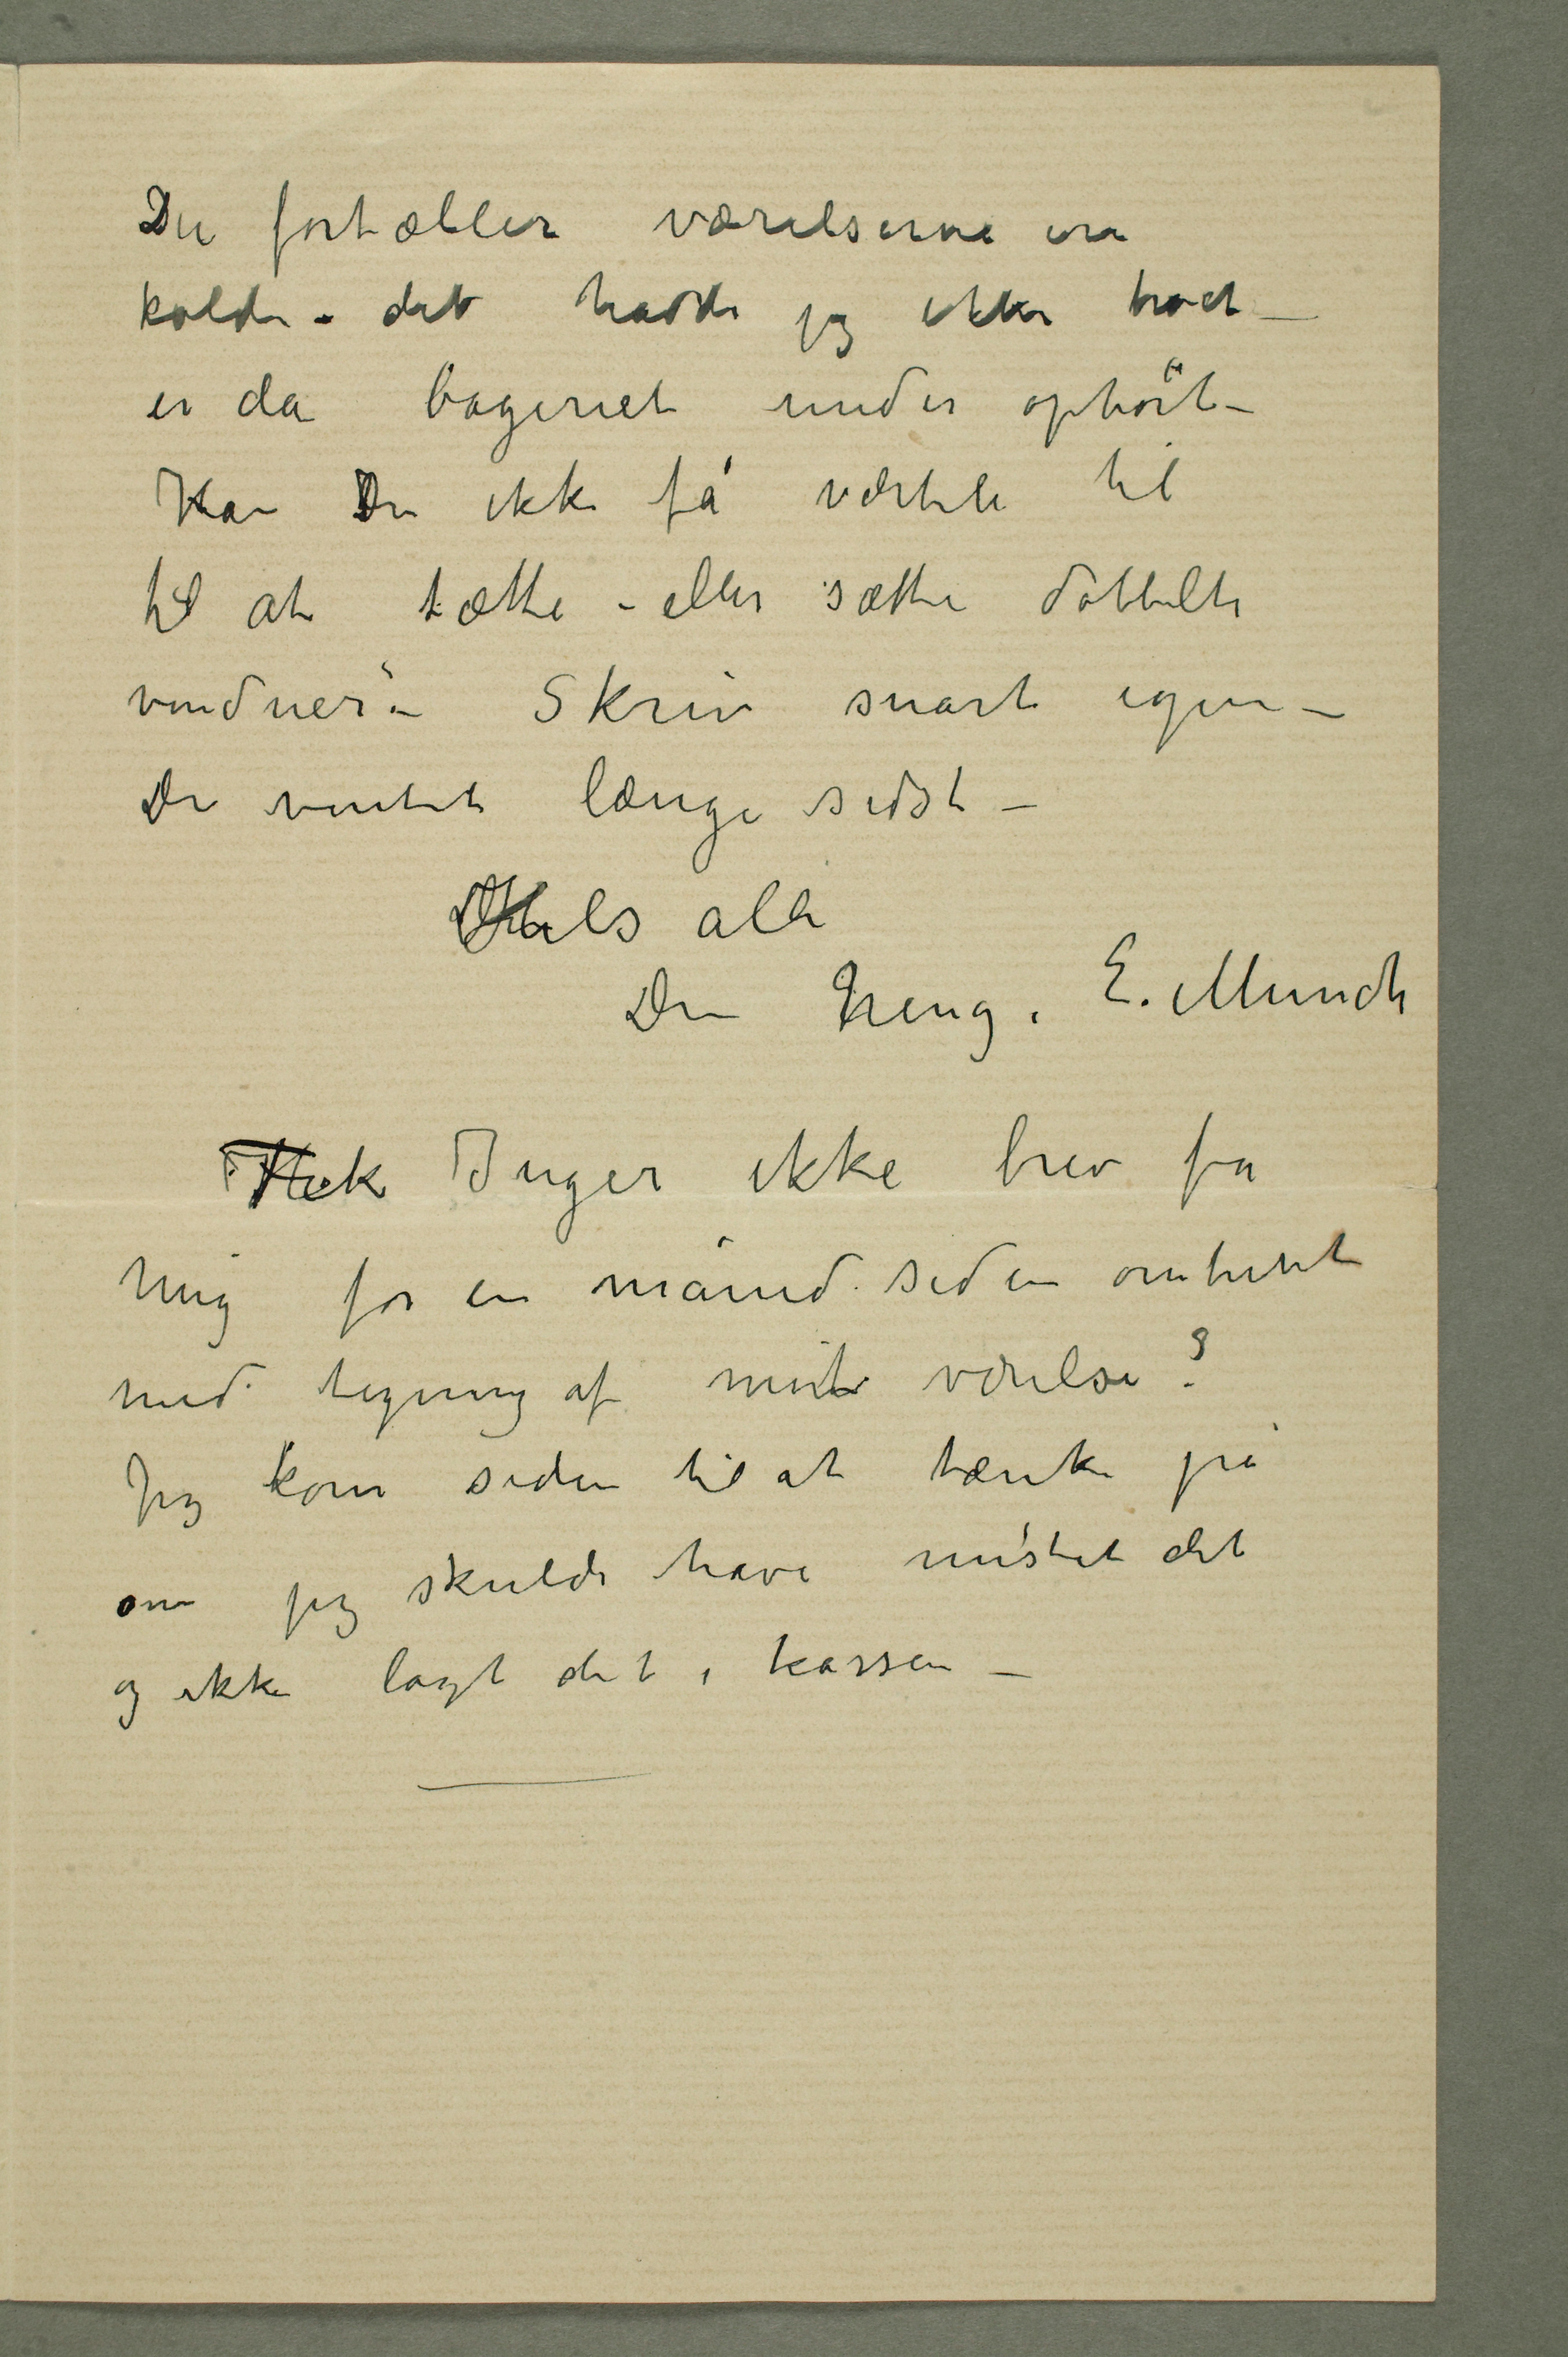 Du fortæller værelserne ere
kolde – det havde jeg ikke troet –
er da bageriet under ophört –
Kan Du ikke få værten til
til at tætte – eller sætte dobbelte
vinduer – Skriv snart igjen –
Du ventet længe sidst –
Hils alle
Din heng. E. Munch
Fik Inger ikke brev fra
mig for en måned siden omtrent
med tegning af mit værelse?
Jeg kom siden til at tænke på
om jeg skulde have mistet det
og ikke lagt det i kassen –